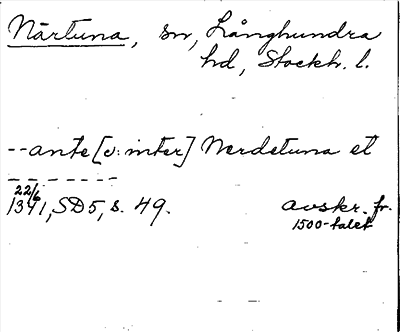 Närtuna, sn, Långhundra
hd, Stockh. l.
--ante [ɔ: inter] Nerdetuna et
- - - - - - -
22/6
1341, SD5, s. 49. avskr. fr.
1500-talet